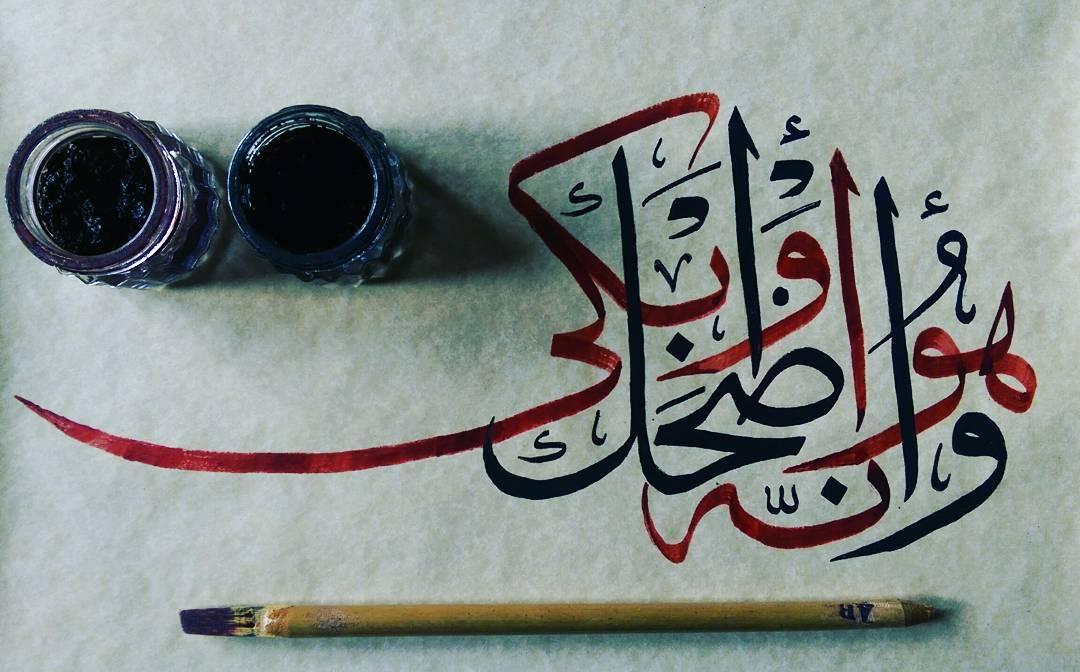 وَأَنَّهُ هُوَ أَضْحَكَ وَأَبْكَى
AR